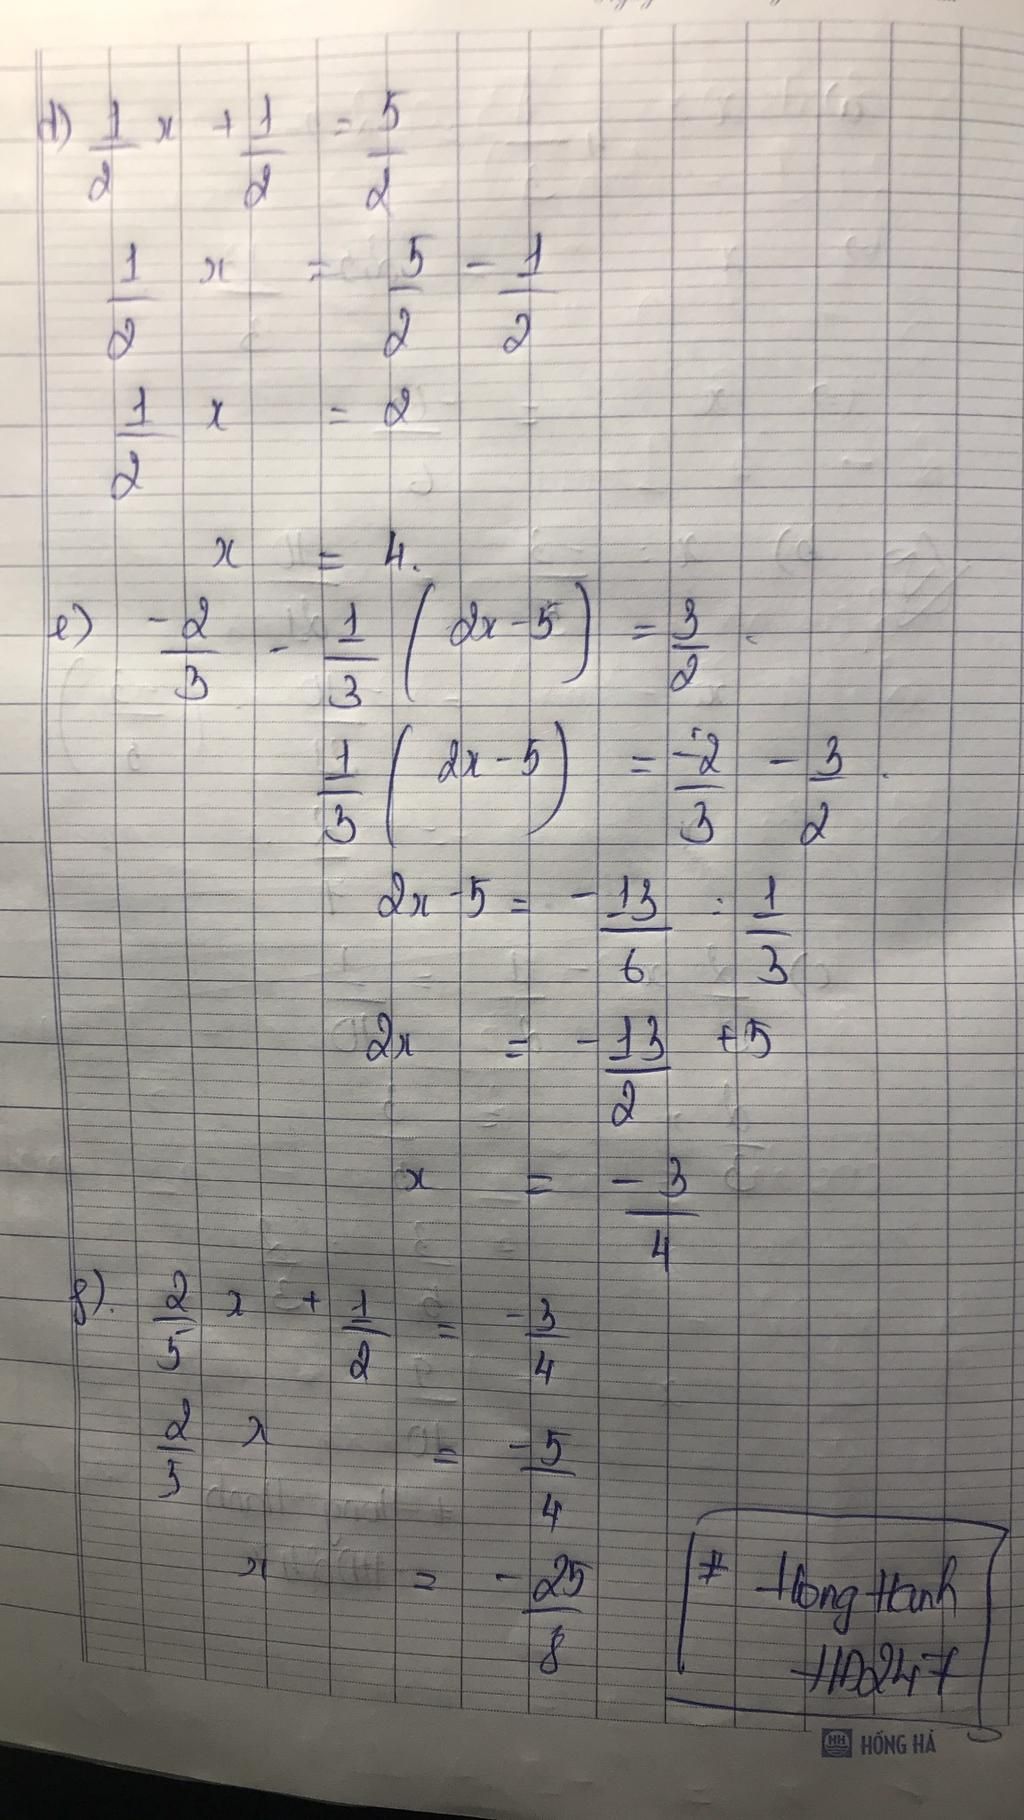 d) 1/2 x + 1/2 = 5/2
1/2 x = 5/2 - 1/2
1/2 x = 2
x = 4.
e) -2/3 - 1/3 (2x - 5) = 3/2.
1/3 (2x - 5) = -2/3 - 3/2.
2x - 5 = -13/6 : 1/3
2x = -13/2 + 5
x = -3/4
f). 2/5 x + 1/2 = -3/4
2/5 x = -5/4
x = -25/8
# Hong Hanh
HD247
HH HỒNG HÀ